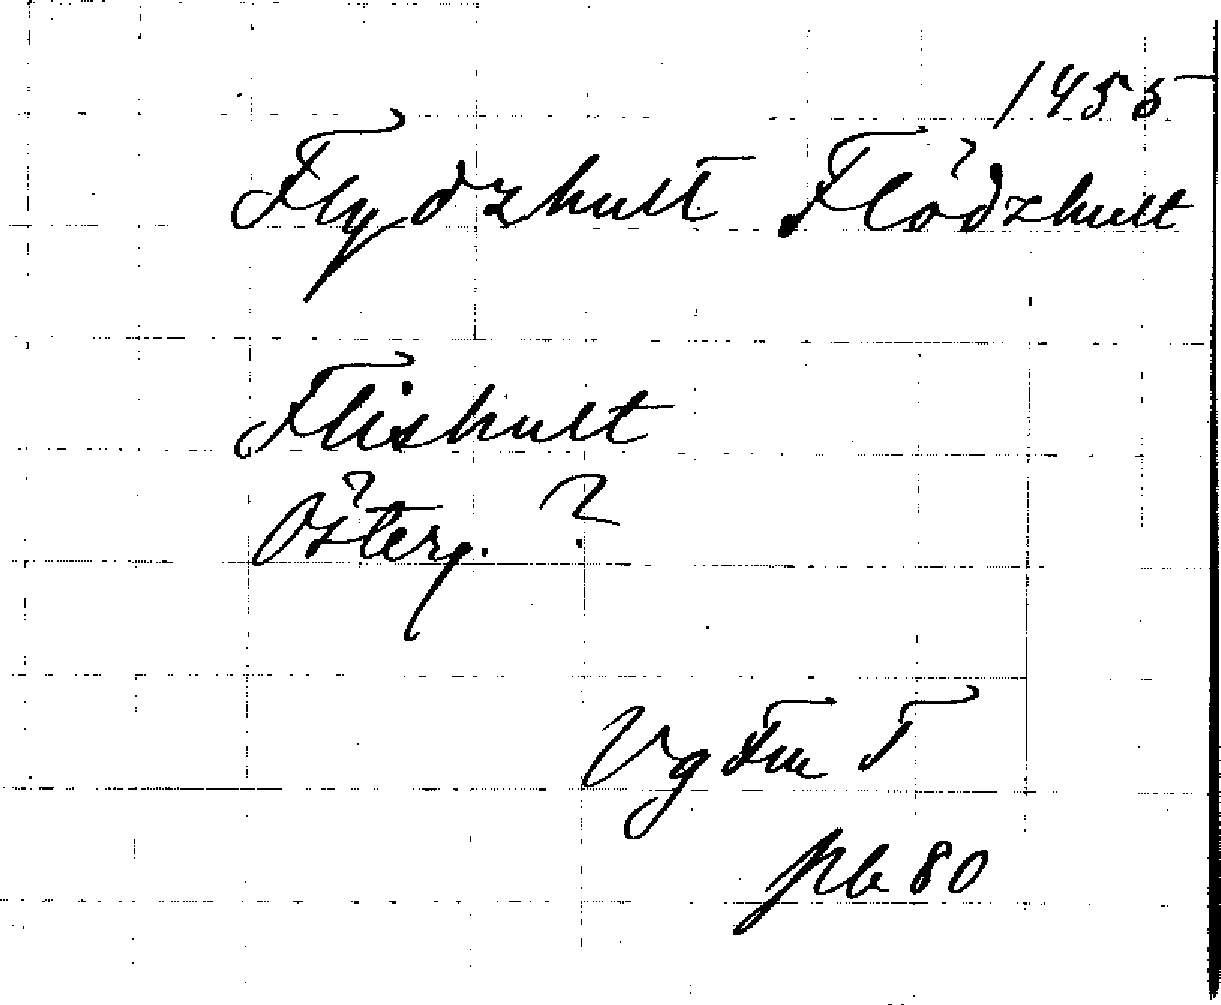 1455
Flydzhult Flödzhult
Flishult
Österg. ?
Vg Fm I
pb 80